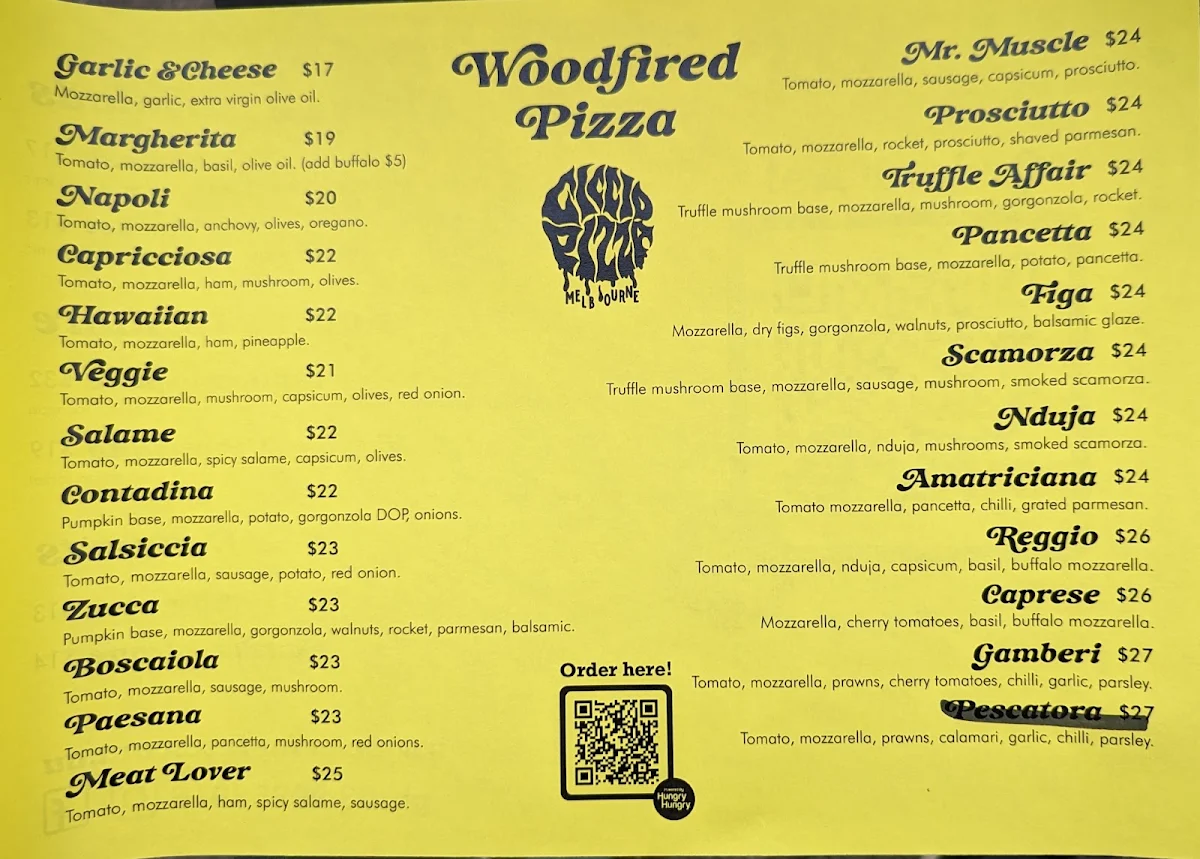 Woodfired
Pizza
CICCIO
PIZZE
MELBOURNE
Garlic &Cheese $17
Mozzarella, garlic, extra virgin olive oil.
Margherita $19
Tomato, mozzarella, basil, olive oil. (add buffalo $5)
Napoli $20
Tomato, mozzarella, anchovy, olives, oregano.
Capricciosa $22
Tomato, mozzarella, ham, mushroom, olives.
Hawaiian $22
Tomato, mozzarella, ham, pineapple.
Veggie $21
Tomato, mozzarella, mushroom, capsicum, olives, red onion.
Salame $22
Tomato, mozzarella, spicy salame, capsicum, olives.
Contadina $22
Pumpkin base, mozzarella, potato, gorgonzola DOP, onions.
Salsiccia $23
Tomato, mozzarella, sausage, potato, red onion.
Zucca $23
Pumpkin base, mozzarella, gorgonzola, walnuts, rocket, parmesan, balsamic.
Boscaiola $23
Tomato, mozzarella, sausage, mushroom.
Paesana $23
Tomato, mozzarella, pancetta, mushroom, red onions.
Meat Lover $25
Tomato, mozzarella, ham, spicy salame, sausage.
Mr. Muscle $24
Tomato, mozzarella, sausage, capsicum, prosciutto.
Prosciutto $24
Tomato, mozzarella, rocket, prosciutto, shaved parmesan.
Truffle Affair $24
Truffle mushroom base, mozzarella, mushroom, gorgonzola, rocket.
Pancetta $24
Truffle mushroom base, mozzarella, potato, pancetta.
Figa $24
Mozzarella, dry figs, gorgonzola, walnuts, prosciutto, balsamic glaze.
Scamorza $24
Truffle mushroom base, mozzarella, sausage, mushroom, smoked scamorza.
Nduja $24
Tomato, mozzarella, nduja, mushrooms, smoked scamorza.
Amatriciana $24
Tomato mozzarella, pancetta, chilli, grated parmesan.
Reggio $26
Tomato, mozzarella, nduja, capsicum, basil, buffalo mozzarella.
Caprese $26
Mozzarella, cherry tomatoes, basil, buffalo mozzarella.
Gamberi $27
Tomato, mozzarella, prawns, cherry tomatoes, chilli, garlic, parsley.
Pescatora $27
Tomato, mozzarella, prawns, calamari, garlic, chilli, parsley.
Order here!
Hungry
Hungry